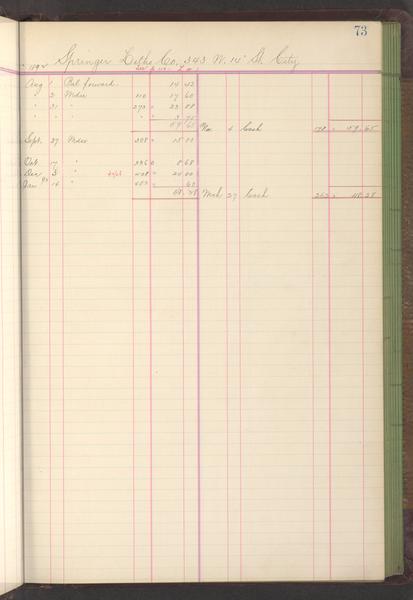 73
Springer Litho Co. 343 W. 14" St. City
Aug 1 Bal forward. 14 42
" 2 Mdse 110 " 17 60
" 31 " 273 " 23 88
" " " 3 75
59 65 Nov 4 Cash 178 " 59.65
Sept. 27 Mdse 308 " 15 00
Oct 17 " 336 " 8 68
Dec 3 " 428 " 24 00
Jan 93 14 " 
Mch 27 Cash 263 "